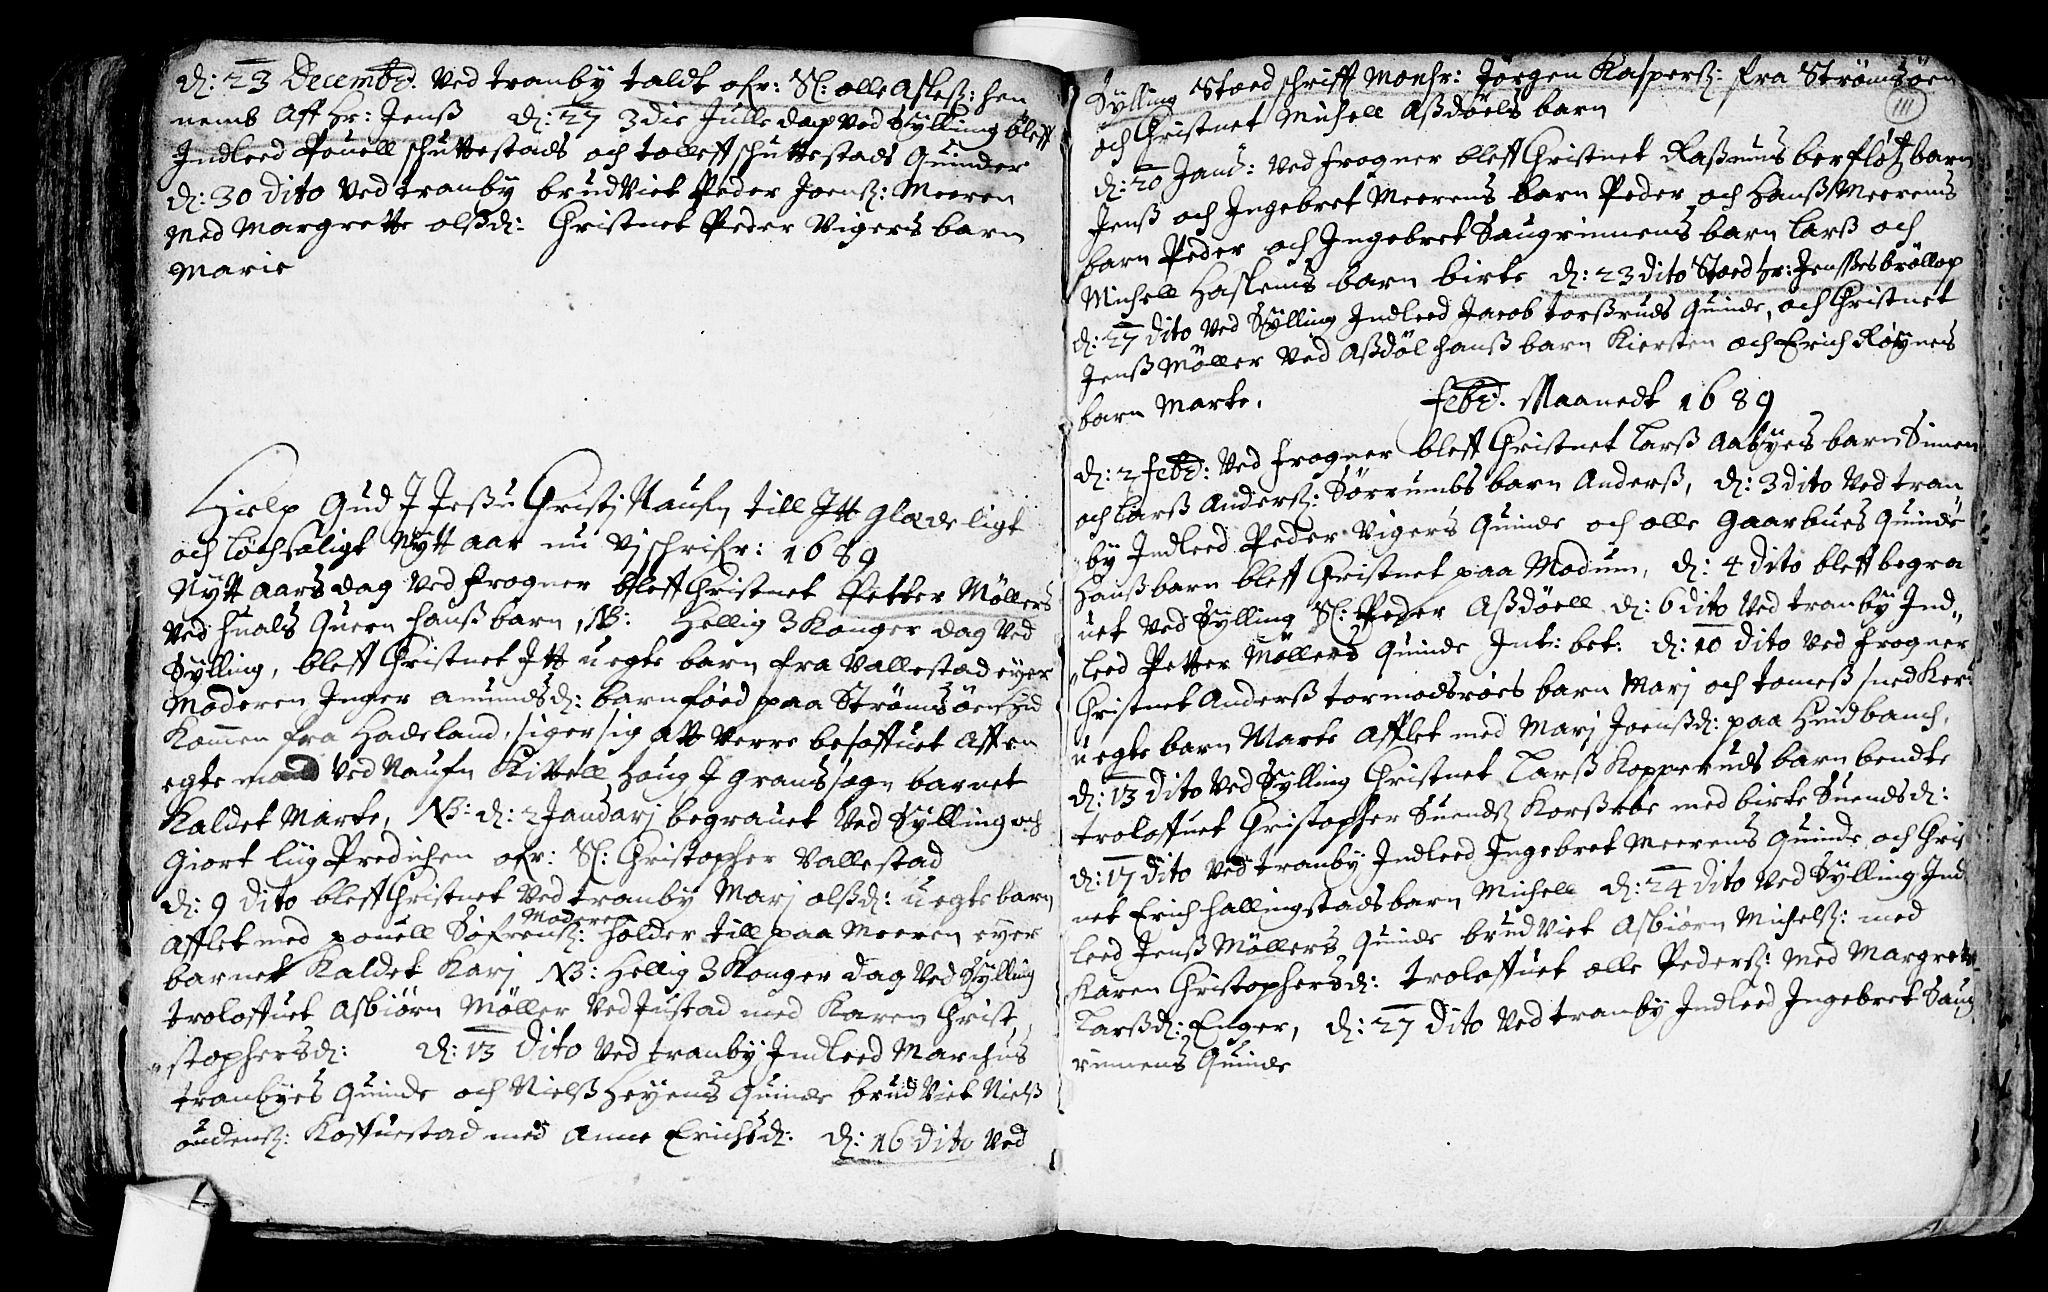 d: 23 Decembr. Ved tranby taldt ofr: Sl: olle Asleß: hen
nemb Aff Hr: Jenß d: 27 3die Julle dag Ved Sylling bleff
Indleed Pouell schuttestads och tolleff schuttestads Quinder
d: 30 dito Ved tranby brudViet Peder Joenß: Meeren
med Margrette olßd: Christnet Peder Vigers barn
Marie
Hielp Gud I Jeßu Christj Naufn till Itt gladeligt
och löchsaligt Nytt aar nu Vj schrifr: 1689
Nytt aarsdag Ved frogner bleff Christnet Petter Möllers
Ved huals Quern hanß barn, NB: Hellig 3 Konger dag Ved
Sylling, bleff Christnet Itt uegte barn fra Vallestad eyer
Moderen Inger amundsd: barnföed paa Strömsöen hid
Kommen fra Hadeland, siger sig att Verre besoffuet Aff en
egte mand Ved Naufn Kittell Houg I Grans sogn barnet
Kaldet Marte, NB: d: 2 Januarj begrauet Ved Sylling och
Giort lüg Predichen ofr: Sl: Christopher Vallestad
d: 9 dito bleff Christnet Ved tranby Marj olßd: uegte barn
Moderen
Afflet med pouell Söfrenß: holder till paa Meeren eyer
barnet Kaldet Karj NB: Hellig 3 Konger dag Ved Sylling
troloffuet Asbiörn Möller Ved Justad med Karen Christ,
"stophersd: d: 13 dito Ved tranby Indleed Marchus
tranbyes Quinde och Nielß Heyens Quinde brudViet Nielß
oudenß: Koffuestad med Anne Erichsd: d: 16 dito Ved
111
Sylling Stoed schrifft Monsr: Jörgen Kasperß: fra Strömsöen
och Christnet Michell Aßdöels barn
d: 20 Janu: Ved frogner bleff Christnet Raßmus berflöt barn
Jenß och Ingebret Meerens barn Peder och Hanß Meerens
barn Peder och Ingebret Saugrinnens barn Larß och
Michell Haslems barn birte d: 23 dito Stoed hr: Jenßes bröllop
d: 27 dito Ved Sylling Indleed Jacob torßruds Quinde, och Christnet
Jenß Möller Ved Aßdöl hanß barn Kiersten och Erich Röynes
barn Marte.
Febr. Maanedt 1689
d: 2 Febr: Ved frogner bleff Christnet Larß Aabyes barn Simen
och Larß Anderß: Sörrumbs barn Anderß, d: 3 dito Ved tran
by Indleed Peder Vigers Quinde och olle Gaarbues Quinde
Hanß barn bleff Christnet paa Modum, d: 4 dito bleff begra
uet Ved Sylling Sl: Peder Aßdöell d: 6 dito Ved tranby Ind"
"leed Petter Möllers Quinde Int: bet: d: 10 dito Ved frogner
Christnet Anderß tormodsröes barn Marj och tomeß snedKer:
uegte barn Marte Afflet med Marj Joenßd: paa Huidbanch,
d: 13 dito Ved Sylling Christnet Larß Kopperuds barn bendte
troloffuet Christopher Suendß Korßröe med birte Suendsd:
d: 17 dito Ved tranby Indleed Ingebret Meerens Quinde och Chris
net Erich hallingstads barn Michell d: 24 dito Ved Sylling Ind
leed Jenß Möllers Quinde brudViet Asbiörn Michelß: med
Karen Christophersd: troloffuet olle Pederß: med Margrette
Larßd: Enger, d: 27 dito Ved tranby Indleed Ingebret Saug
rinnens Quinde